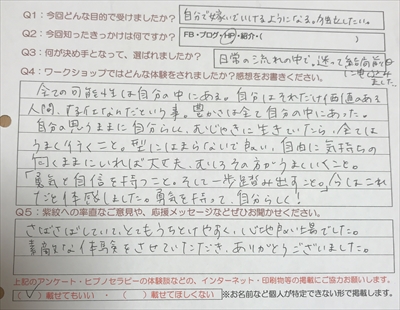 Q1：今回どんな目的で受けましたか？ 自分で稼いでいけるようになる。自立したい。
Q2：今回知ったきっかけは何ですか？ FB・ブログ・HP・紹介・（ ）
Q3：何が決め手となって、選ばれましたか？ 日常の流れの中で、迷って結局前に
進みました。
Q4：ワークショップではどんな体験をされましたか？感想をお書きください。
全ての可能性は自分の中にある。自分はそれだけ価値のある
人間、存在なんだという事。豊かさは全て自分の中にあった。
自分の思うままに自分らしく、むじゃきに生きていたら、全ては
うまく行くこと。型にはまらないで良い、自由に気持ちの
向くままにいれば大丈夫、むしろその方がうまくいくこと。
「勇気と自信を持つこと。そして一歩踏み出すこと。」今はこれ
だと体感しました。勇気を持って、自分らしく！
Q5：紋紋への率直なご意見や、応援メッセージなどぜひお聞かせください。
さばさばしていて、とてもうちとけやすく、いごこち良い場でした。
素敵な体験をさせていただき、ありがとうございました。
上記のアンケート・ヒプノセラピーの体験談などの、インターネット・印刷物等の掲載にご協力お願いします。
（✓）載せてもいい ・（ ）載せてほしくない ※お名前など個人が特定できない形で掲載します。